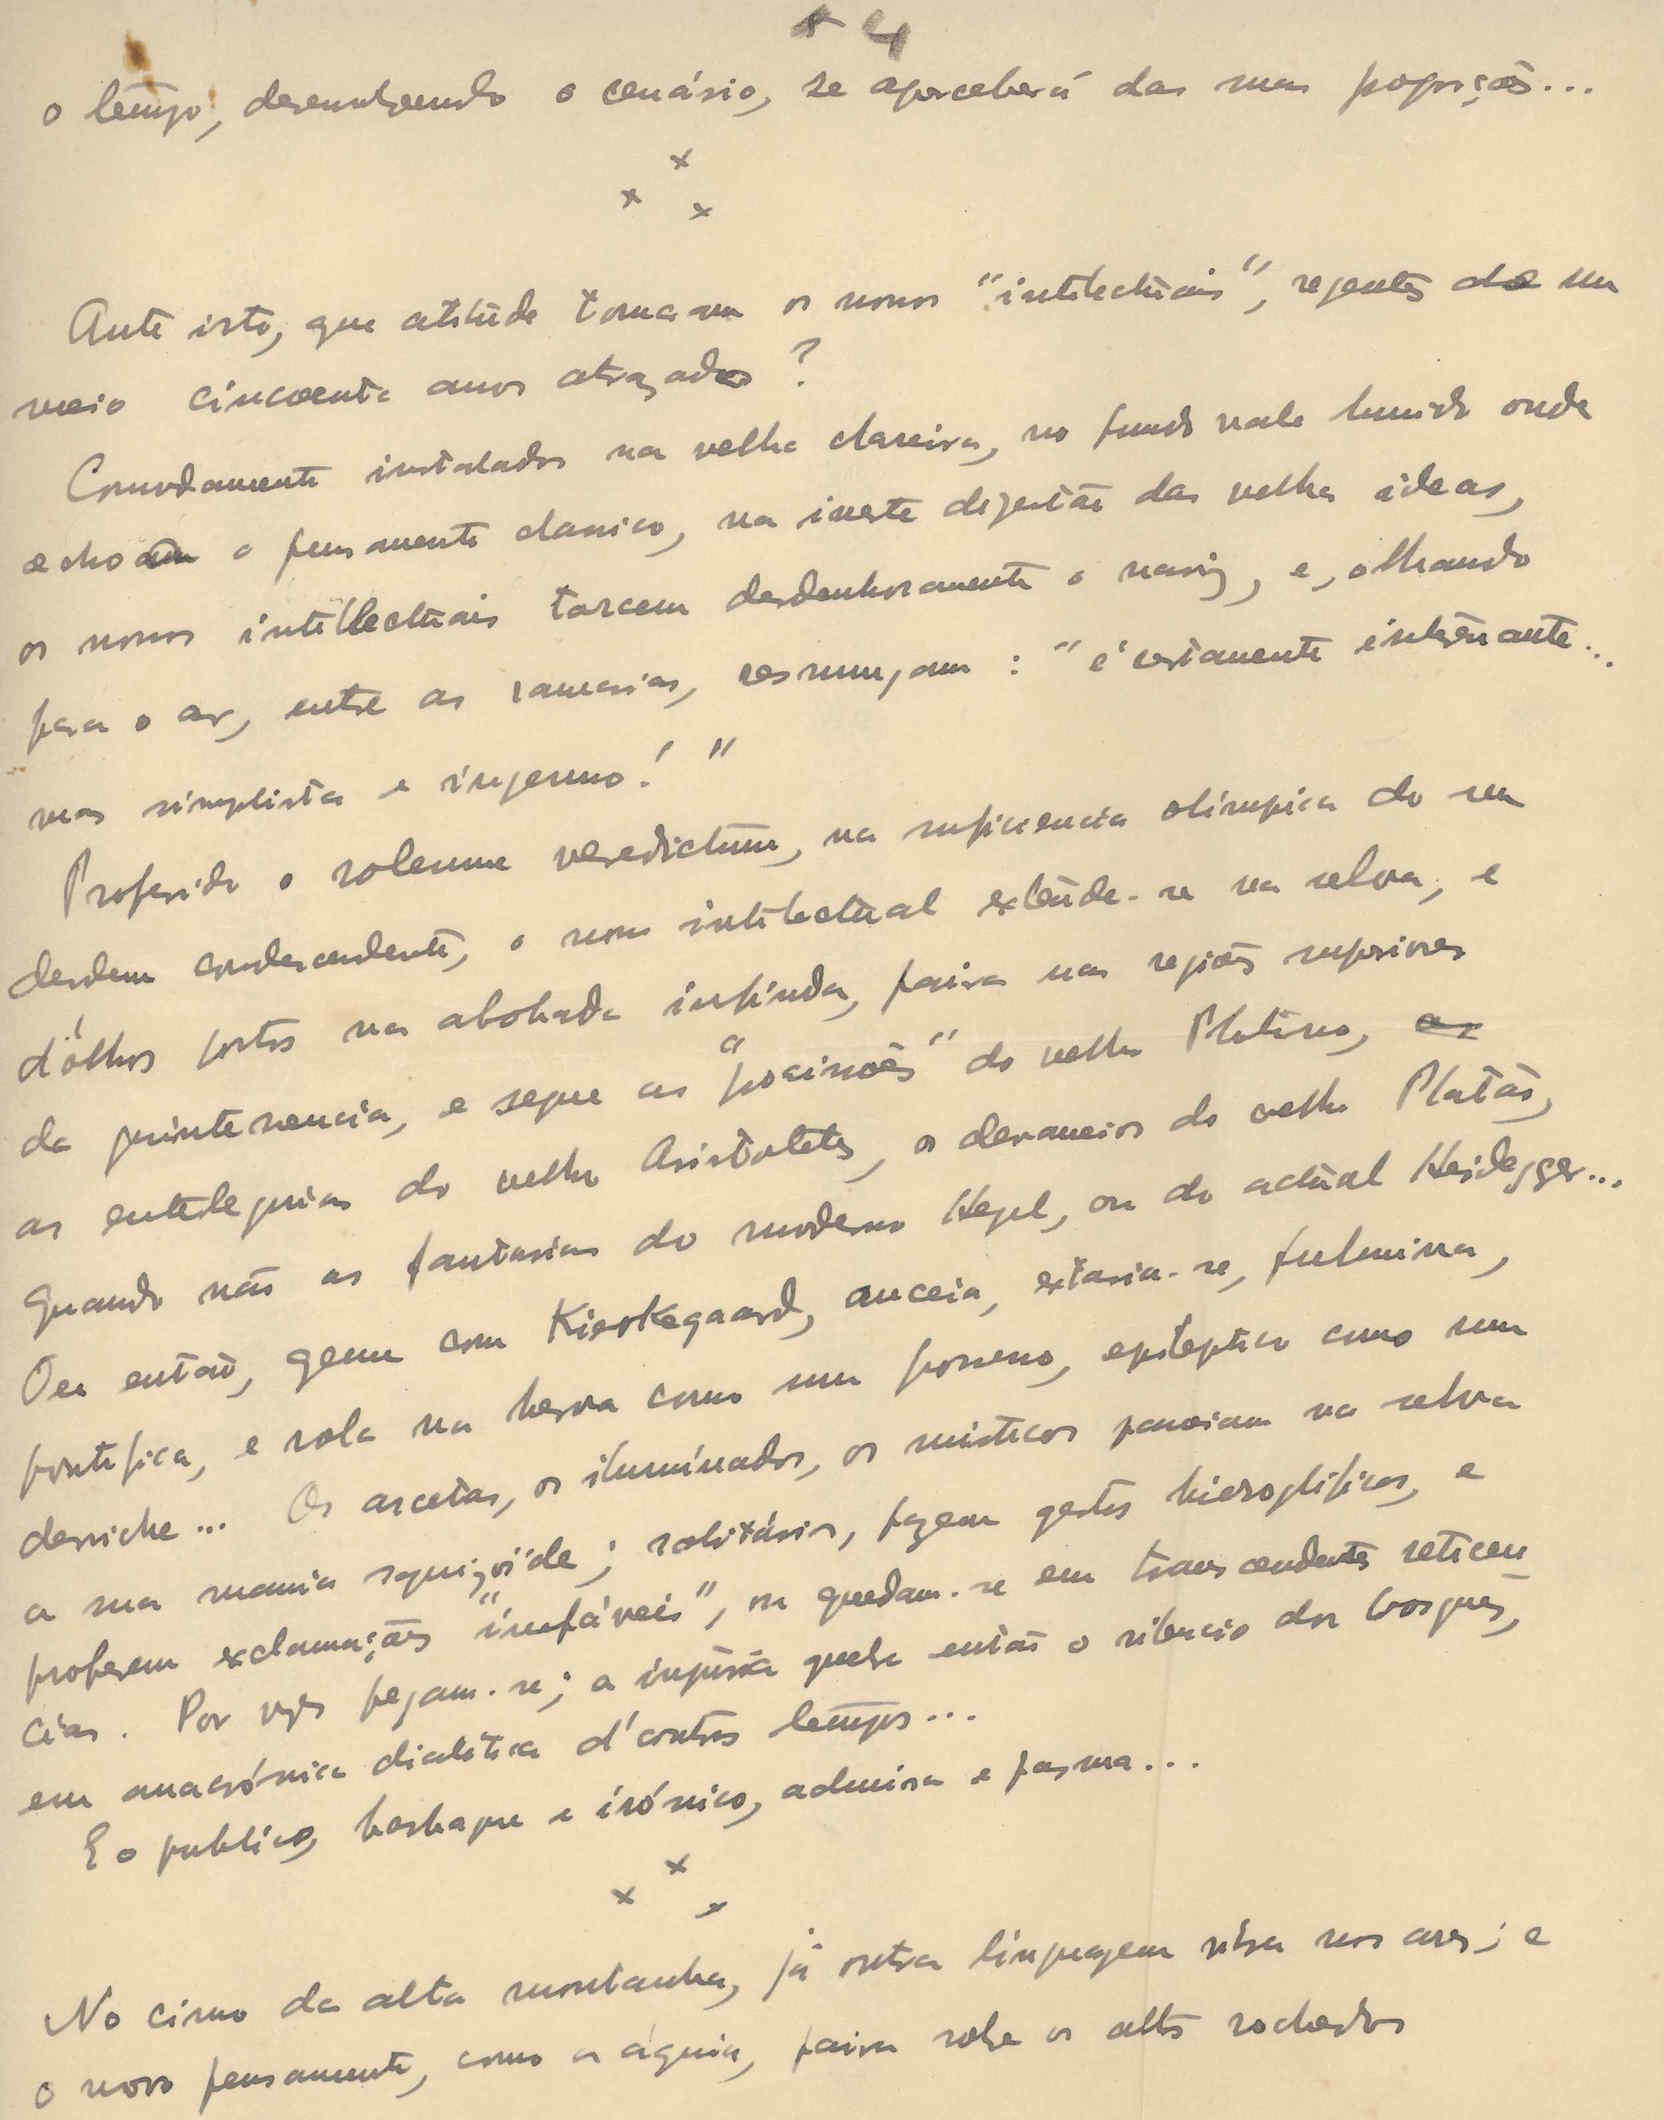 4
o tempo, desenvolvendo o cenário, se aperceberá das suas posições...
x x x
Ante isto, que atitude tomaram os nossos "intelectuais", regentes de um
meio cincoenta anos atrazado?
Comodamente instalados na velha clareira, no fundo vale humido onde
echoam o pensamento classico, na inerte digestão das velhas ideas,
os nossos intellectuais torcem desdenhosamente o nariz, e, olhando
para o ar, entre as ramarias, resmungam: "é certamente interessante...
mas simplista e ingenuo!"
Proferido o solemne veredictum, na suficiencia olimpica do seu
desdem condescendente, o nosso intelectual extende-se na selva, e
d'ólhos postos na abobada infinda, paira nas regiões superiores
da quintessencia, e segue as do velho Plotino, as
as entelequias do velho Aristoteles, os devaneios do velho Platão,
quando não as fantasias do moderno Hegel, ou do actual Heidegger...
Ou então, geme com Kierkegaard, anceia, extasia-se, fulmina,
pontifica, e rola na herva como um possesso, epileptico como um
derviche... Os ascetas, os iluminados, os misticos passeiam na selva
a sua mania squizoide; solitários, fazem gestos hieroglificos, e
proferem exclamações "inefáveis", ou quedam-se em transcendentes reticen-
cias. Por vezes pegam-se; a injúria quebra então o silencio dos bosques,
em anacrónica dialética d'outros tempos...
E o publico, basbaque e irónico, admira e pasma...
x x x
No cimo da alta montanha, já outra linguagem vibra nos ares; e
o novo pensamento, como a águia, paira sobre os altos rochedos